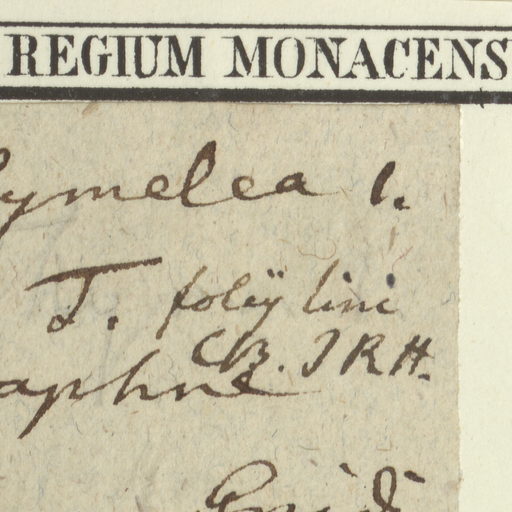 REGIUM MONACENS
ymelea 1.
T. folÿ lini
CB. J R H.
aphne